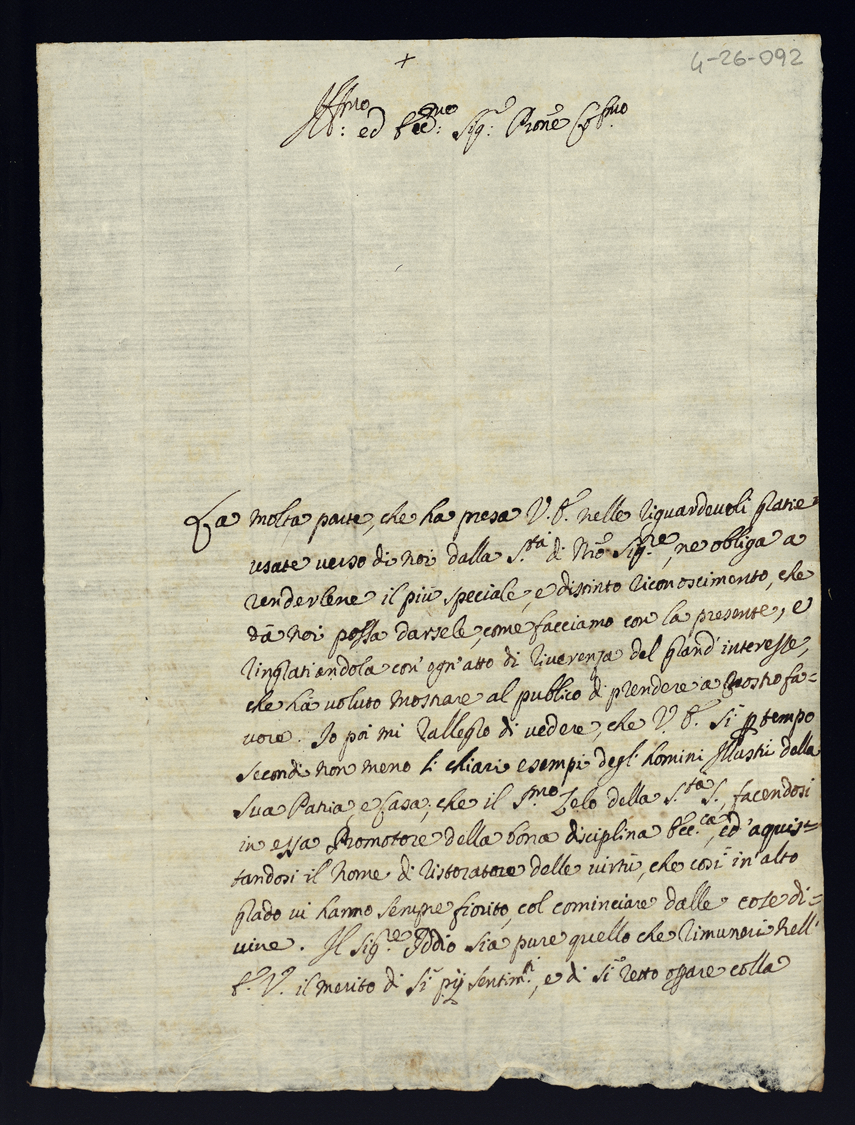 4-26-092
+
Ill:mo ed Ecc:mo Sig:r Prone Col:mo
La molta parte, che ha presa V. E. nelle riguardevoli gratie
usate verso di noi dalla S.tà di Nro Sig.re, ne obliga a
renderlene il più speciale, e distinto riconoscimento, che
dà noi possa darsele, come facciamo con la presente, e
ringratiandola con' ogn' atto di riverenza del grand' interesse,
che hà voluto mostrare al publico di prendere a nostro fa=
vore. Io poi mi rallegro di vedere, che V. E. sì p tempo
secondi non meno li chiari esempi degl' homini Illustri della
sua Patria, e Casa, che il S.mo Zelo della S.tà S., facendosi
in essa Promotore della bona disciplina Ecc.ca, ed' aquis=
tandosi il nome di ristoratore delle virtù, che così in' alto
grado vi hanno sempre fiorito, col cominciare dalle cose di=
vine. Il Sig.re Iddio sia pure quello che rimuneri nell'
E. V. il merito di sì pij sentim.ti, e di sì retto oprare colla